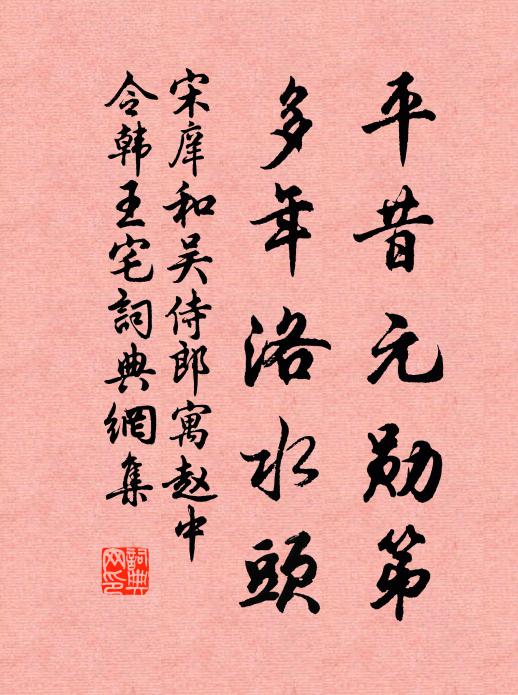 平昔元勋第
多年洛水頭
宋庠和吴侍郎寓赵中
令韩王宅詞典網集
詞典网印